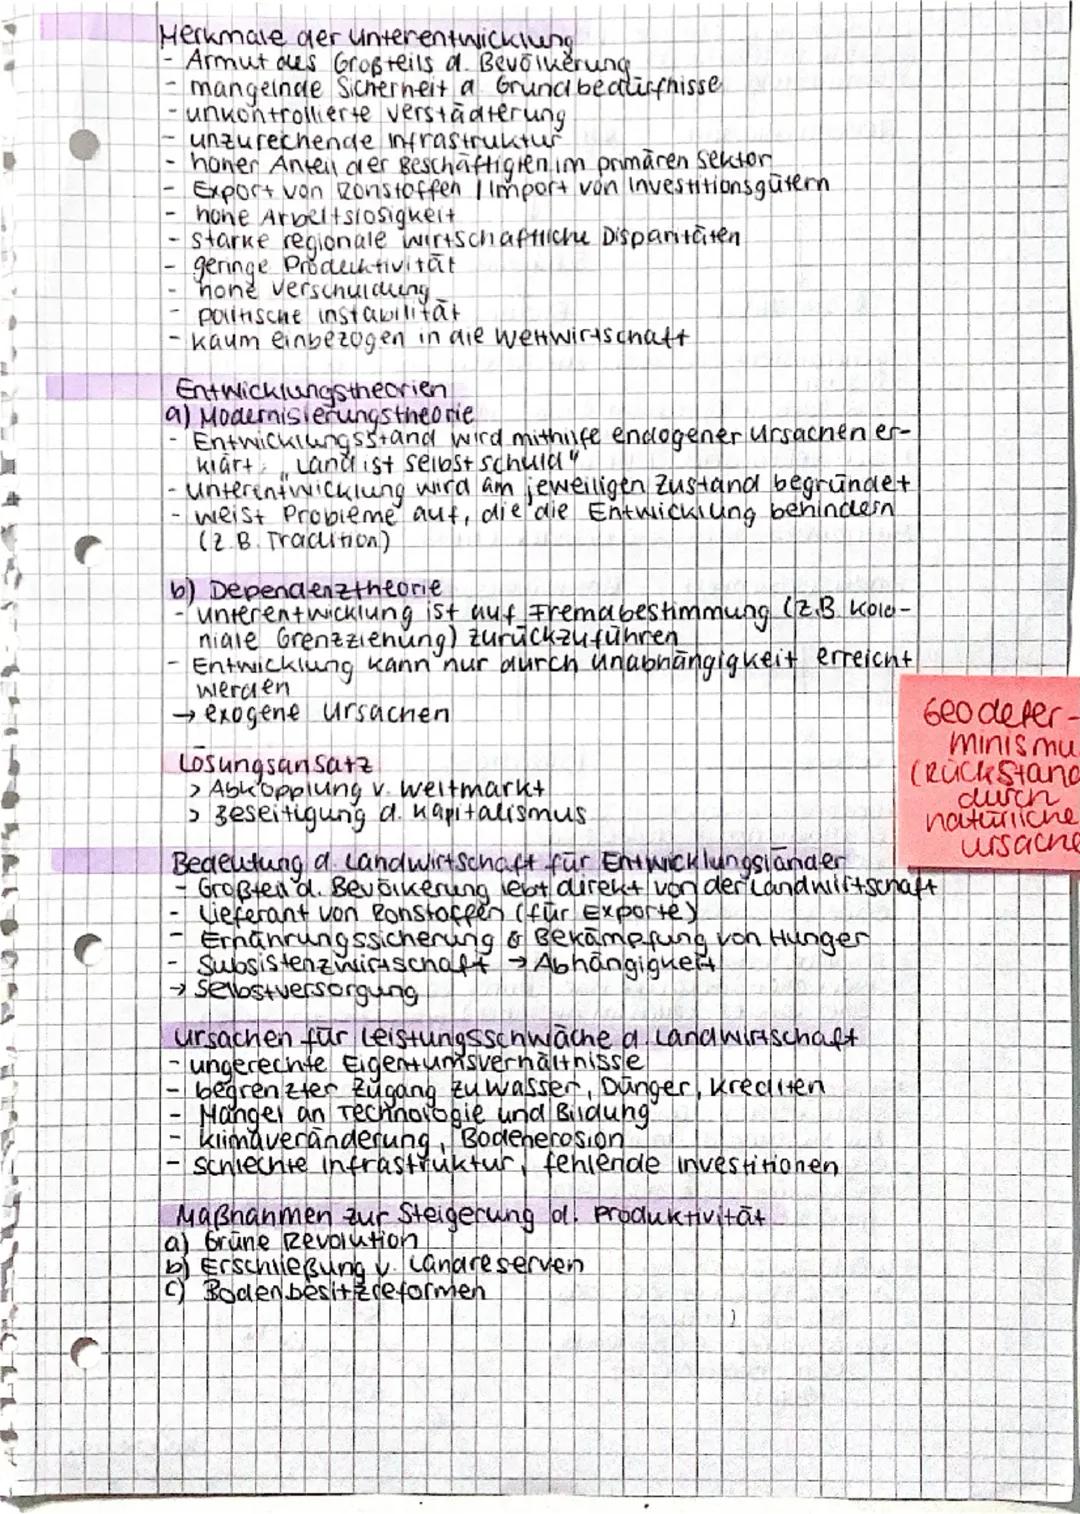 Merkmale der Unterentwicklung
- Armut des Großteils d. Bevölkerung
- mangelnde Sicherheit d. Grundbedürfnisse
- unkontrollierte Verstädterung
- unzureichende Infrastruktur
- hoher Anteil der Beschäftigten im primären Sektor
- Export von Rohstoffen / Import von Investitionsgütern
- hohe Arbeitslosigkeit
- starke regionale wirtschaftliche Disparitäten
- geringe Produktivität
- hohe Verschuldung
- politische Instabilität
- kaum einbezogen in die Weltwirtschaft
Entwicklungstheorien
a) Modernisierungstheorie
- Entwicklungsstand wird mithilfe endogener Ursachen er-
klärt, „Land ist selbst schuld"
- Unterentwicklung wird am jeweiligen Zustand begründet
- weist Probleme auf, die die Entwicklung behindern
(z.B. Tradition)
b) Dependenztheorie
- Unterentwicklung ist auf Fremdbestimmung (z.B. kolo-
niale Grenzziehung) zurückzuführen
- Entwicklung kann nur durch Unabhängigkeit erreicht
werden
→ exogene Ursachen
Geodeter-
minismu
(Rückstand
durch
natürliche
Ursache
Lösungsansatz
> Abkopplung v. Weltmarkt
> Beseitigung d. Kapitalismus
Bedeutung d. Landwirtschaft für Entwicklungsländer
- Großteil d. Bevölkerung lebt direkt von der Landwirtschaft
- Lieferant von Rohstoffen (für Exporte)
- Ernährungssicherung & Bekämpfung von Hunger
- Subsistenzwirtschaft → Abhängigkeit
→ Selbstversorgung
Ursachen für Leistungsschwäche d. Landwirtschaft
- ungerechte Eigentumsverhältnisse
- begrenzter Zugang zu Wasser, Dünger, Krediten
- Mangel an Technologie und Bildung
- Klimaveränderung, Bodenerosion
- schlechte Infrastruktur, fehlende Investitionen
Maßnahmen zur Steigerung d. Produktivität
a) Grüne Revolution
b) Erschließung v. Landreserven
c) Bodenbesitzreformen